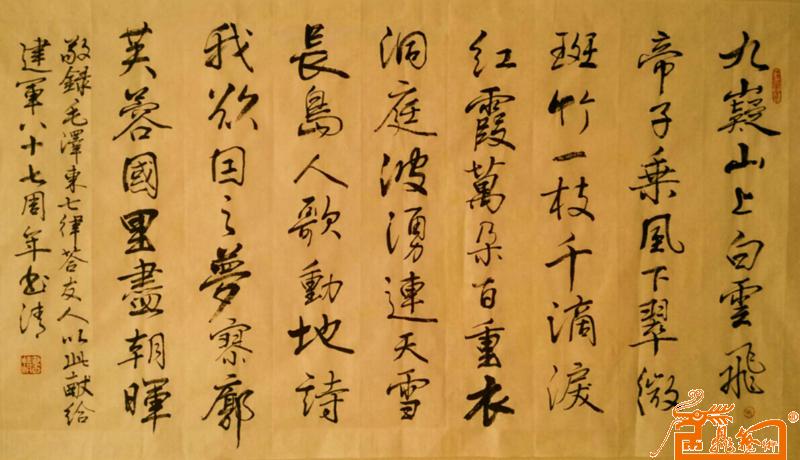 九嶷山上白雲飛
帝子乘風下翠微
斑竹一枝千滴淚
紅霞萬朵百重衣
洞庭波湧連天雪
長島人歌動地詩
我欲因之夢寥廓
芙蓉國里盡朝暉
敬錄毛澤東七律答友人以此獻給
建軍八十七周年